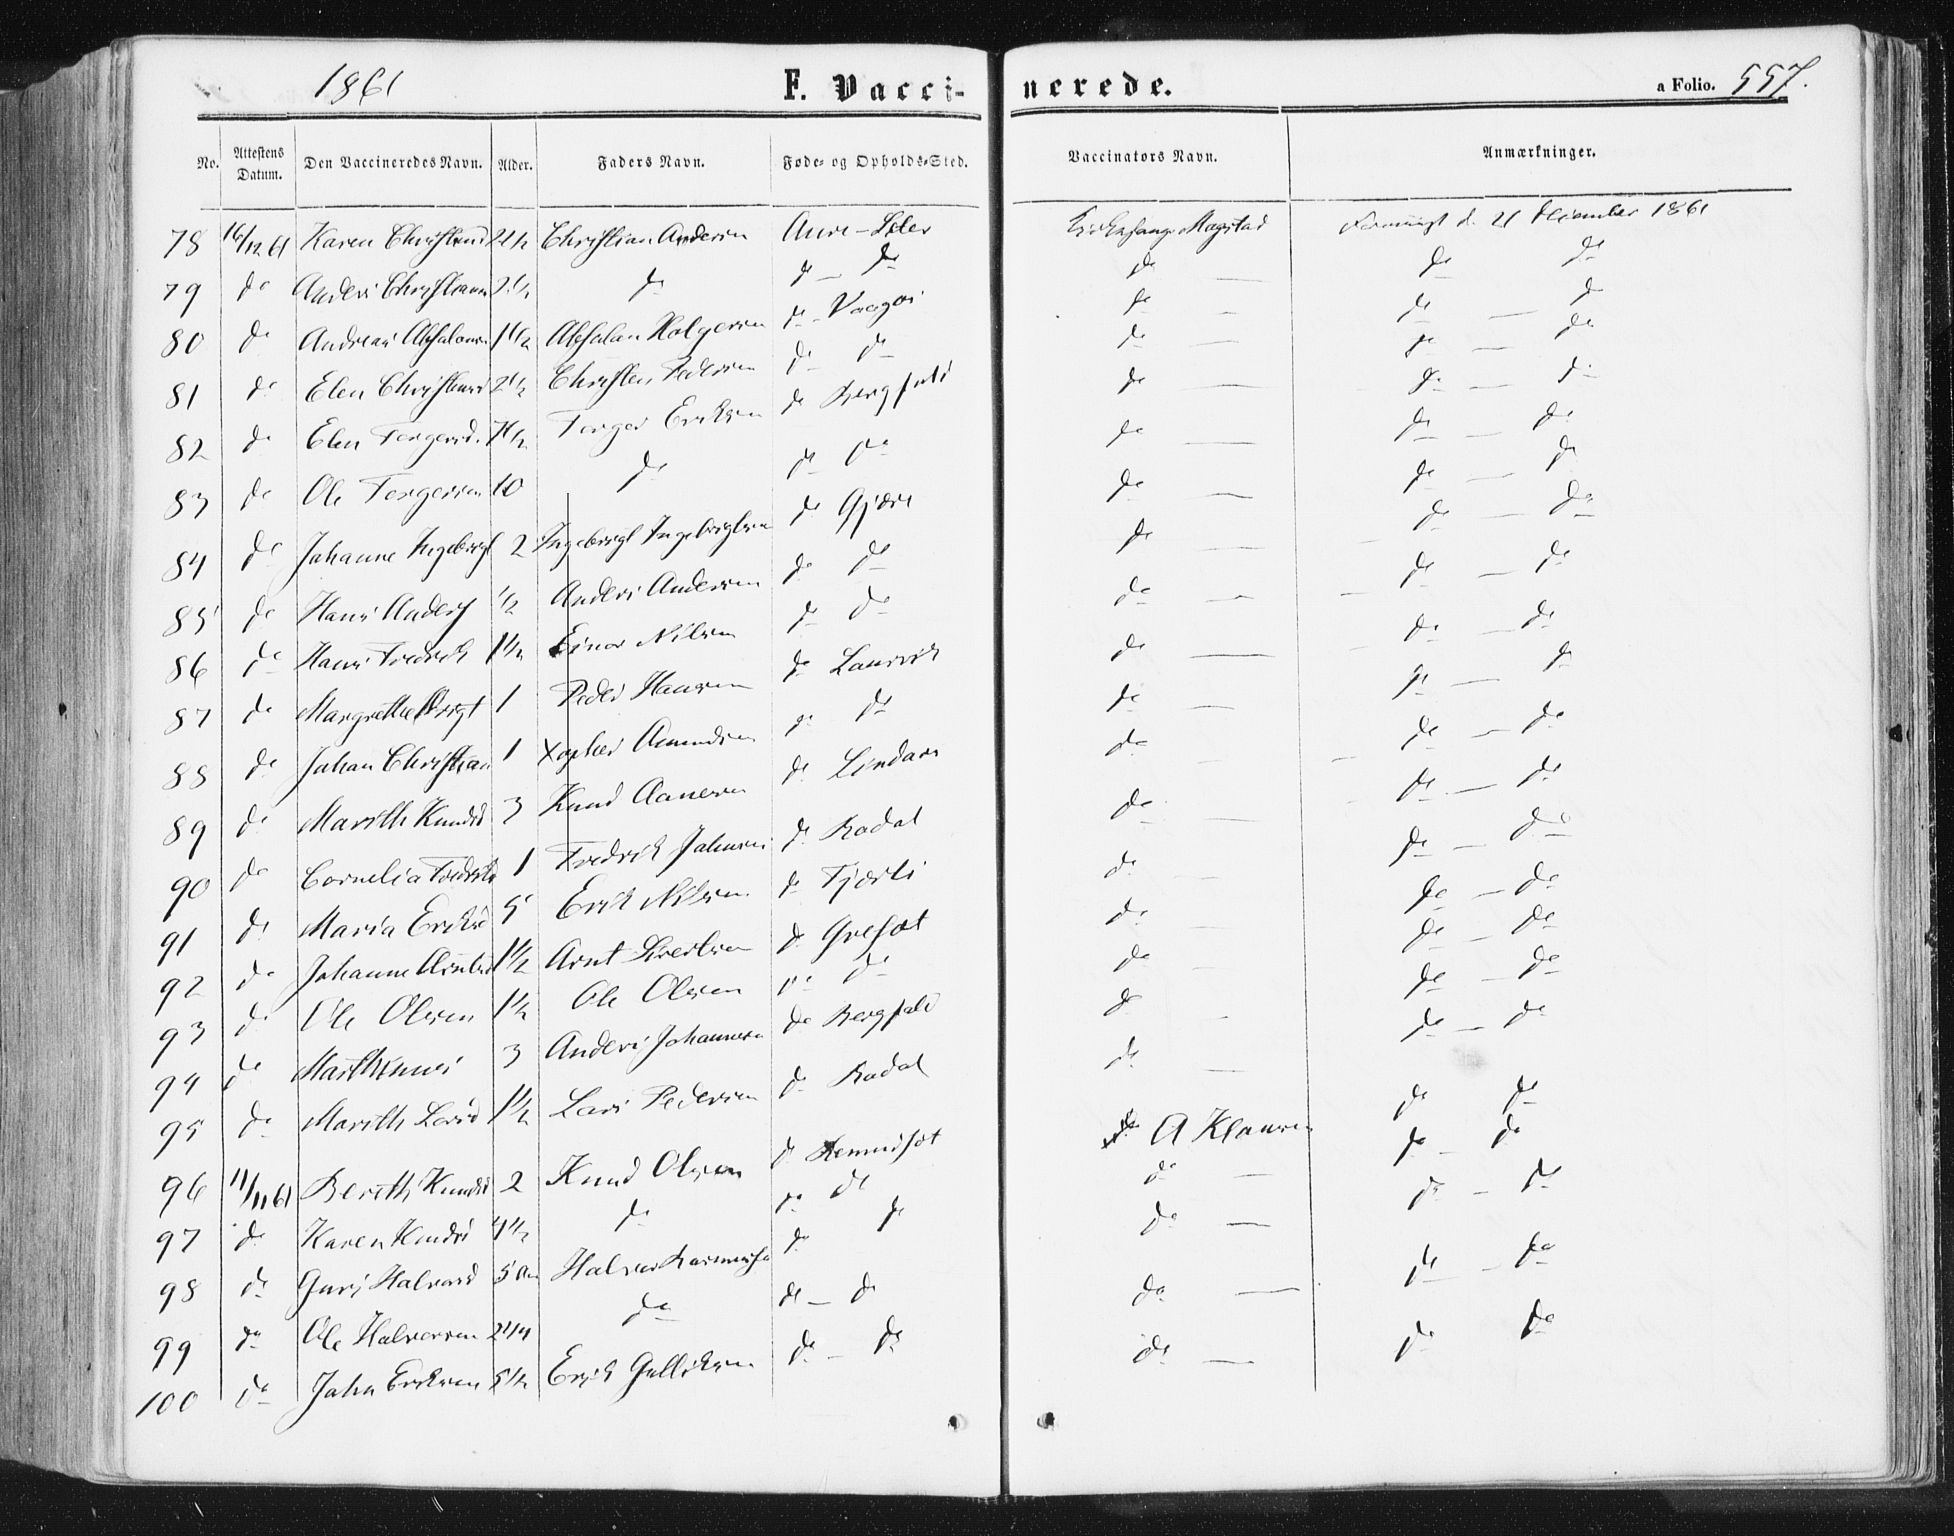 1861 F. Vacci- nerede. a Folio. 557.
No. Attestens Datum. Den Vaccineredes Navn. Alder. Faders Navn. Føde- og Opholds-Sted. Vaccinators Navn. Anmærkninger.
78 16/12 61 Karen Christiansd 2 1/2 Christian Andersen Aure - Magstad d. 21 December 1861
79 do Anders Christiansen 2 1/2 do do - do do — do do
80 do Andreas Absalonsen 1 1/2 Absalon Holgersen do - Vaagos do — do — do
81 do Elen Christensd 2 1/2 Christen Pedersen do - do do — do — do
82 do Elen Torgersd. 7 1/2 Torger Eriksen do Bergfald do — do — do
83 do Ole Torgersen 10 do do - do do — do — do
84 do Johanne Ingebrigt 2 Ingebrigt Ingebrigtsen do Gjøre do — do — do
85 do Hans Anders 1/2 Anders Andersen do do do — do — do
86 do Hans Fredrik 1 1/2 Einar Nilsen do do do — do — do
87 do Margrethe Birgt 1 Peder Hansen do Laurvik do — do — do
88 do Johan Christian 1 Xopher Amundsen do do do — do — do
89 do Marith Knudsd 3 Knud Aanesen do do — do — do
90 do Cornelia Fredriksd 1 Fredrik Johnsen do Rodal do — do — do
91 do Maria Eriksd 5 Erik Nilsen do Tjærli do — do — do
92 do Johanne Arntsd 1 1/2 Arnt Sivertsen do Grefset do — do — do
93 do Ole Olsen 1 1/2 Ole Olsen do do do — do — do
94 do Marthinus 3 Anders Johannesen do Bergfald do — do — do
95 do Marith Larsd 1 1/2 Lars Pedersen do Rodal do —
96 11/11 61 Berith Knudsd 2 Knud Olsen do do A Klausen do do
97 do Karen Knudsd 4 1/2 do do do do — do - do
98 do Guri Halvorsd 5 Halvor Rasmussen do do do — do - do
99 do Ole Halvorsen 2 1/4 do do - do do — do - do
100 do John Eriksen 5 1/2 Erik Gulliksen do - do do — do do